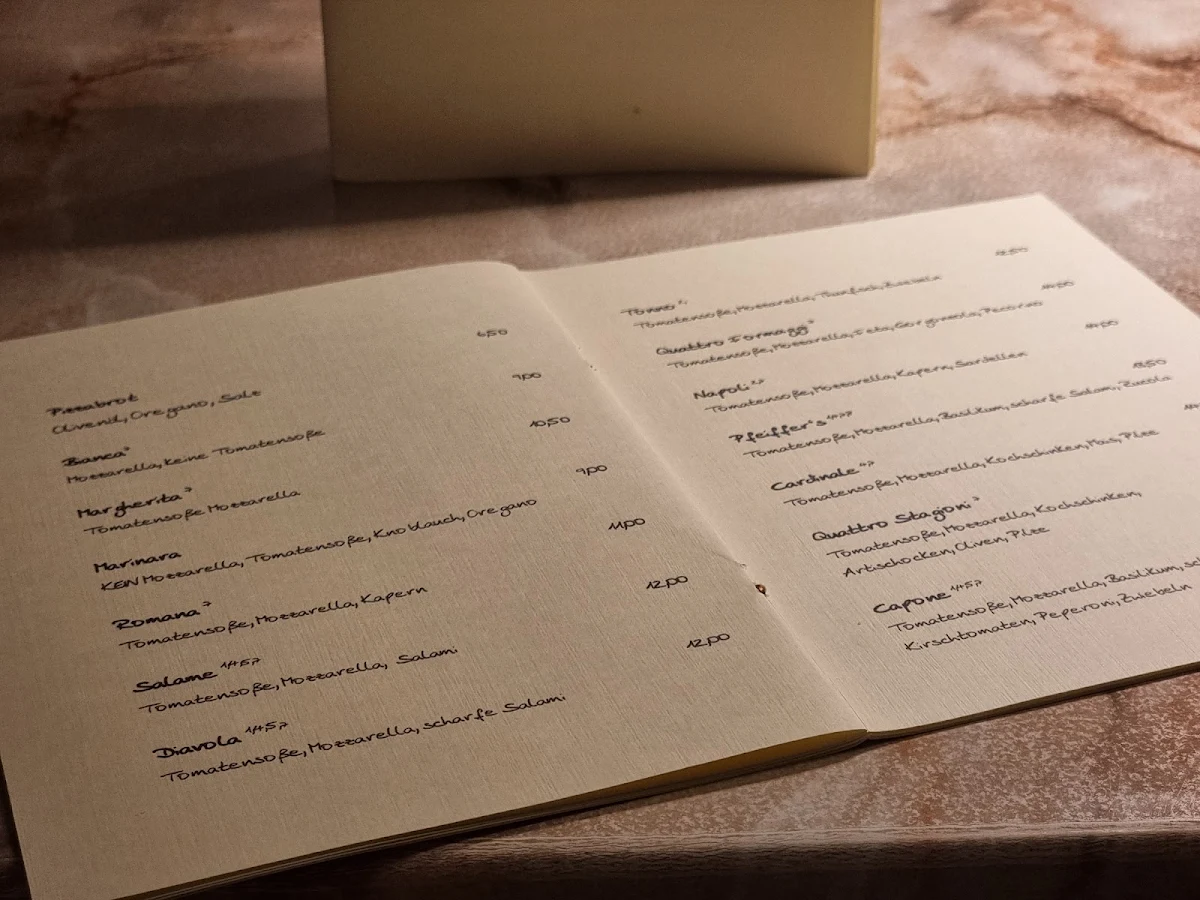 Pizzabrot 6,50
Olivenöl, Oregano, Salz
Bianca⁷ 9,00
Mozzarella, keine Tomatensoße
Margherita⁷ 10,50
Tomatensoße Mozzarella
Marinara 9,00
KEIN Mozzarella, Tomatensoße, Knoblauch, Oregano
Romana⁷ 11,00
Tomatensoße, Mozzarella, Kapern
Salame 12,00
Tomatensoße, Mozzarella, Salami
Diavola 12,00
Tomatensoße, Mozzarella, scharfe Salami
Tonno
Tomatensoße, Mozzarella, Thunfisch, Zwiebeln
Quattro Formaggi
Tomatensoße, Mozzarella, Feta, Gorgonzola, Pecorino
Napoli
Tomatensoße, Mozzarella, Kapern, Sardellen
Pfeiffer's
Tomatensoße, Mozzarella, Basilikum, scharfe Salami, Zucola
Cardinale
Tomatensoße, Mozzarella, Kochschinken, Mais, Pilze
Quattro Stagioni⁷
Tomatensoße, Mozzarella, Kochschinken,
Artischocken, Oliven, Pilze
Capone
Tomatensoße, Mozzarella, Basilikum,
Kirschtomaten, Peperoni, Zwiebeln